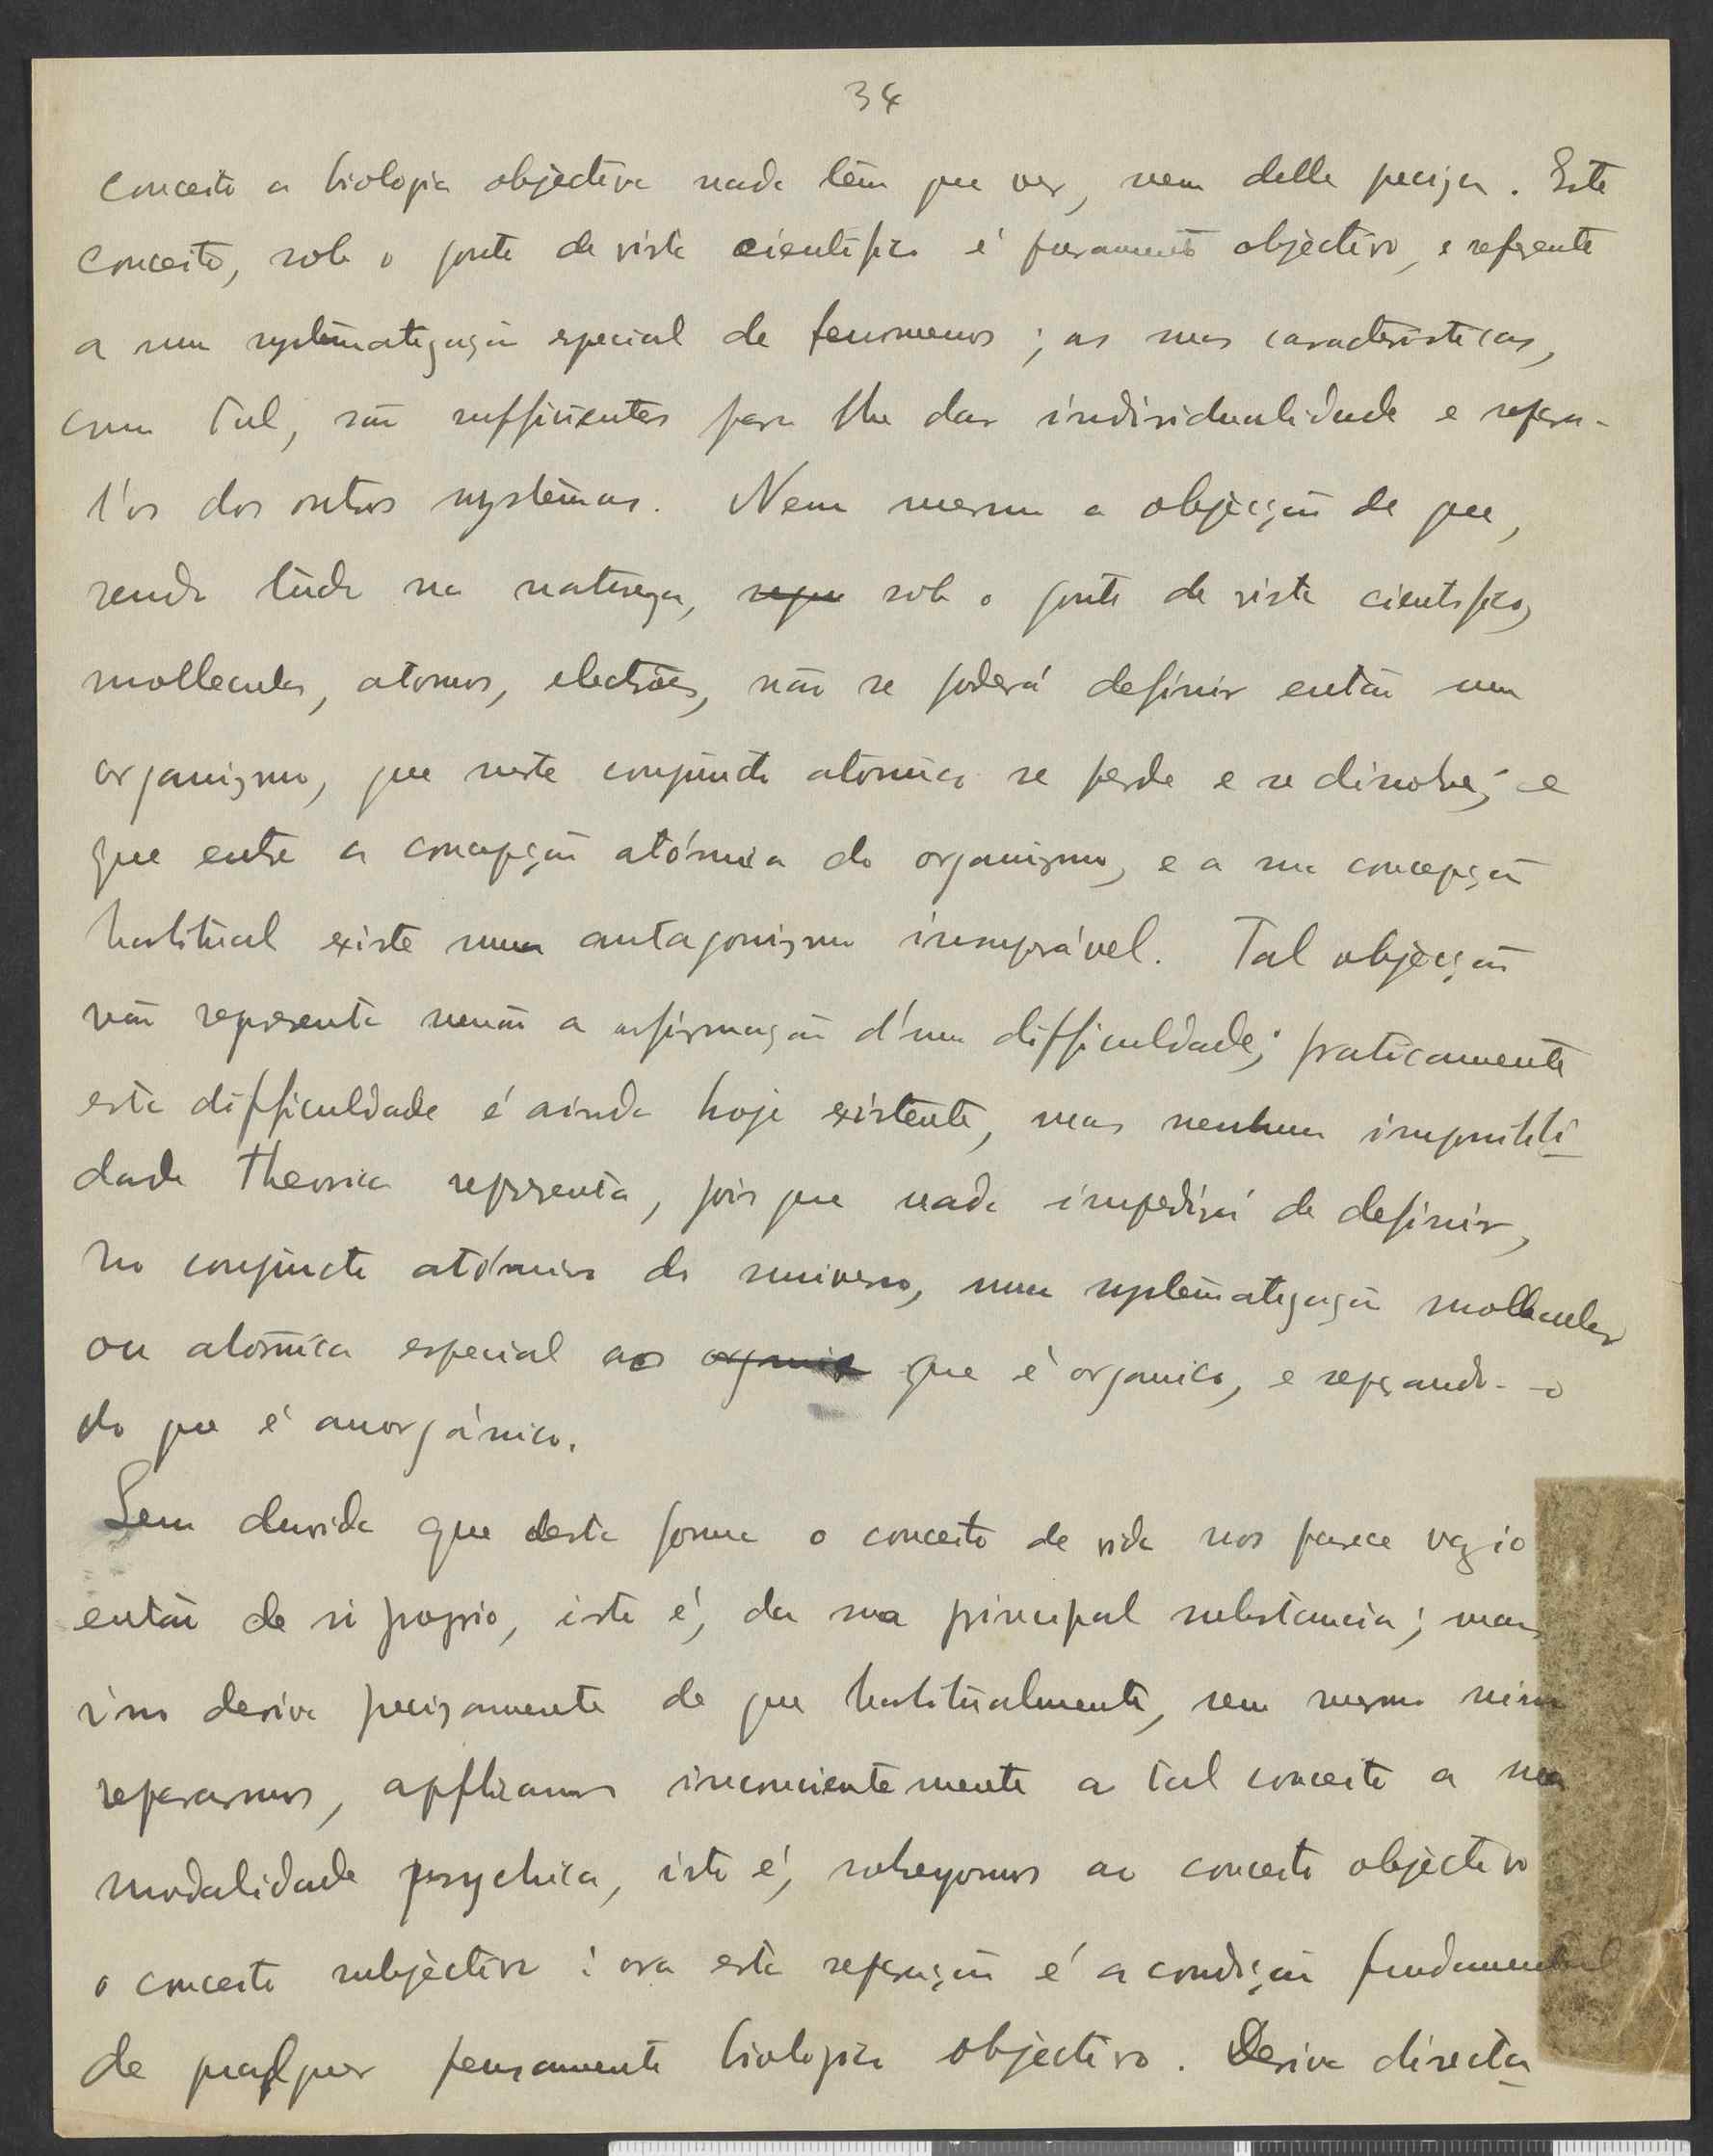 34
conceito a biologia objectiva nada têm que ver, nem delle preciza. Este
conceito, sob o ponto de vista cientifico é puramente objectivo, e referente
a uma systèmatização especial de fenomenos; as suas caracteristicas,
como tal, são sufficientes para lhe dar individualidade e sepera-
l'os dos outros systèmas. Nem mesmo a objecção de que,
sendo tudo na natureza, sob o ponto de vista cientifico,
molleculas, atomos, electrões, não se poderá definir então um
organismo, que neste conjuncto atomico se perde e se dissolve; e
que entre a concepção atómica do organismo, e a sua concepção
habitual existe um antagonismo insuperável. Tal objecção
não representa senão a affirmação d'uma difficuldade; praticamente
esta difficuldade é ainda hoje existente, mas nenhuma impossibili
dade theorica representa, pois que nada impedirá de definir,
no conjuncto atómico do universo, uma systèmatização mollecular
ou atomica especial ao que é organico, e seperando-o
do que é anorgánico.
Sem duvida que desta forma o conceito de vida nos parece vazio
então de si proprio, isto é, da sua principal substancia; mas
isso deriva precizamente de que habitualmente, sem mesmo nisso
repararmos, applicamos inconcientemente a tal conceito a sua
modalidade psychica, isto é, sobrepomos ao conceito objectivo
o conceito subjectivo: ora esta seperação é a condição fundamental
de qualquer pensamento biologico objectivo. Deriva directa